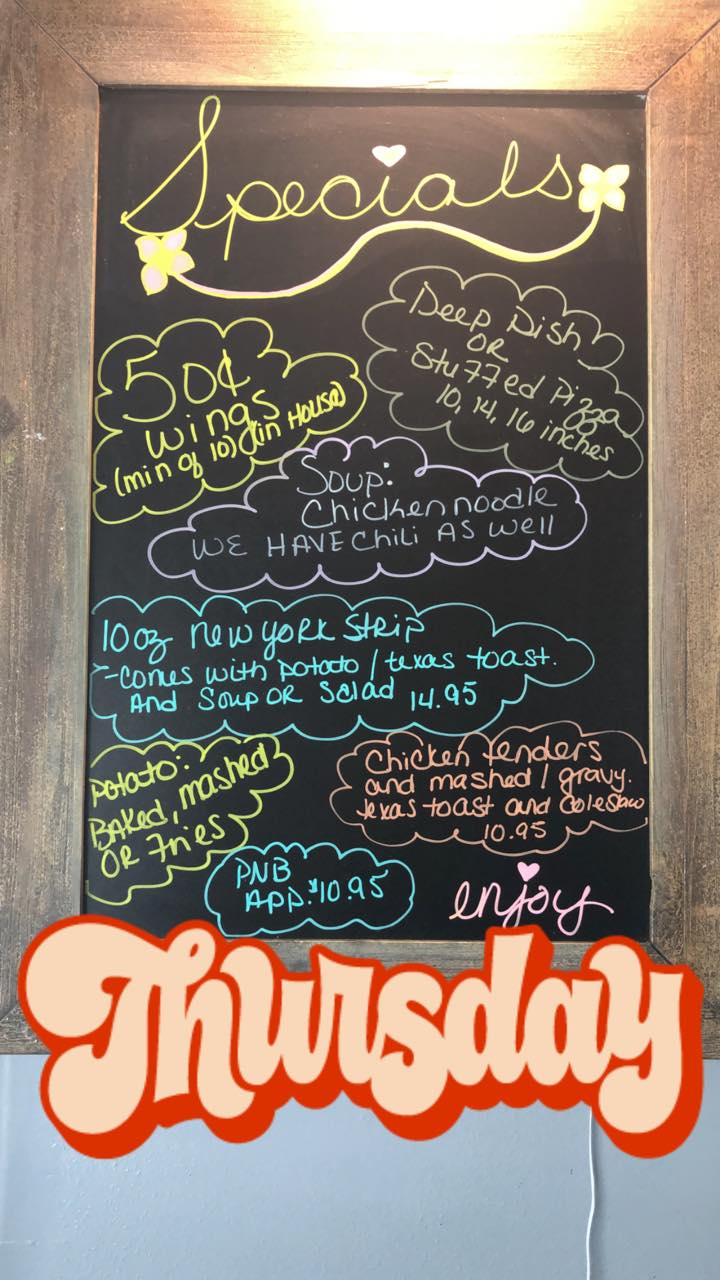 Specials
50¢
wings
(min of 10) (in House)
Deep Dish
OR
Stuffed Pizza
10, 14, 16 inches
Soup:
Chicken noodle
WE HAVE Chili AS well
10oz New York Strip
-Comes with potato / texas toast.
And Soup OR Salad 14.95
Potato:
Baked, mashed
OR Fries
Chicken tenders
and mashed / gravy.
texas toast and Coleslaw
10.95
PNB
APP. $10.95
enjoy
Thursday